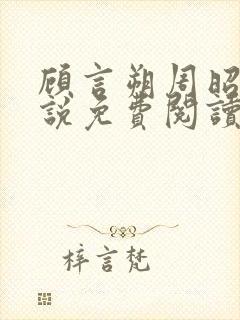 顾言朔周昭
說免費閱讀
梓言梵